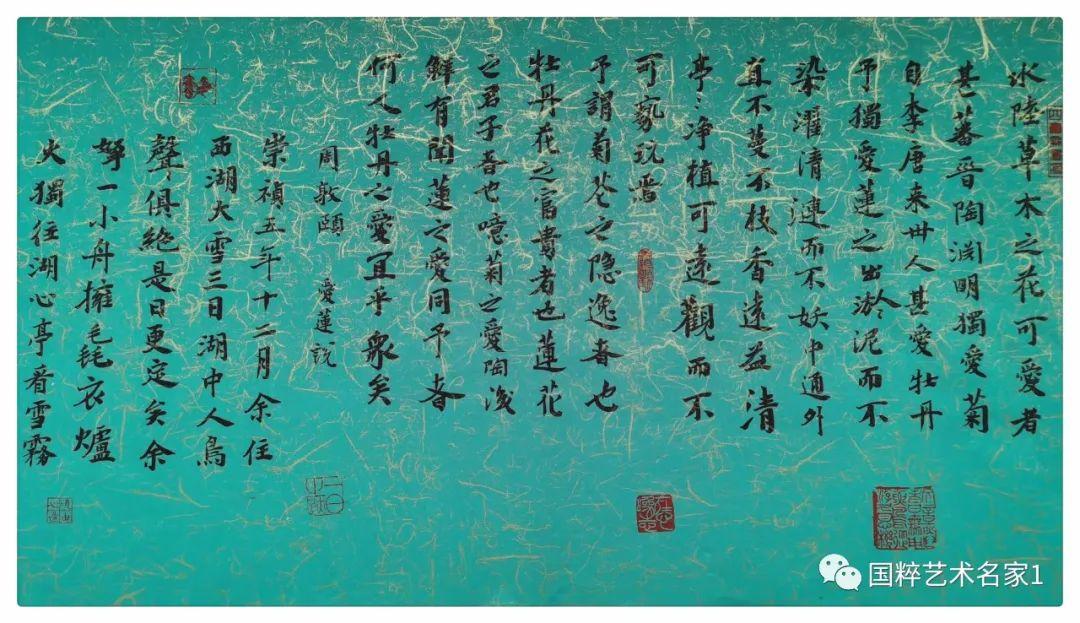 水陸草木之花可愛者
甚蕃晉陶淵明獨愛菊
自李唐来世人甚愛牡丹
予獨愛蓮之出淤泥而不
染濯清漣而不妖中通外
直不蔓不枝香遠益清
亭〻净植可遠觀而不
可褻玩焉
予謂菊花之隐逸者也
牡丹花之富貴者也蓮花
之君子者也噫菊之愛陶後
鮮有聞蓮之愛同予者
何人牡丹之愛宜乎衆矣
周敦頤 愛蓮説
崇禎五年十二月余住
西湖大雪三日湖中人鳥
聲俱絶是日更定矣余
拏一小舟擁毛毳衣爐
火獨往湖心亭看雪霧
国粹艺术名家1